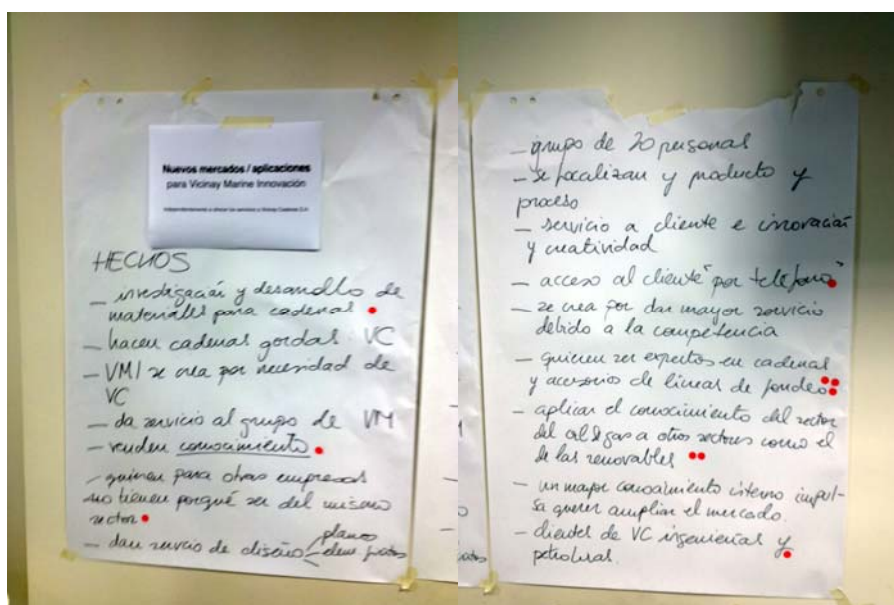 Nuevos mercados / aplicaciones
para Vicinay Marine Innovación
Independientemente a ofrecer los servicios a Vicinay Cadenas S.A.
HECHOS
— investigación y desarrollo de
materiales para cadenas
— hacen cadenas gordas VC
— VMI se crea por necesidad de
VC
— da servicio al grupo de VM
— venden conocimiento
— quieren para otras empresas
no tienen porqué ser del mismo
sector
— dan servicio de diseño planos
elem.
— grupo de 20 personas
— se focalizan y producto y
proceso
— servicio a cliente e innovación
y creatividad
— acceso al cliente "por teléfono"
— se crea por dar mayor servicio
debido a la competencia
— quieren ser expertos en cadenas
y accesorios de líneas de fondeo
— aplicar el conocimiento del sector
del oil & gas a otros sectores como el
de las renovables
— un mayor conocimiento interno impul-
sa querer ampliar el mercado.
— clientes de VC ingenierías y
petroleras.